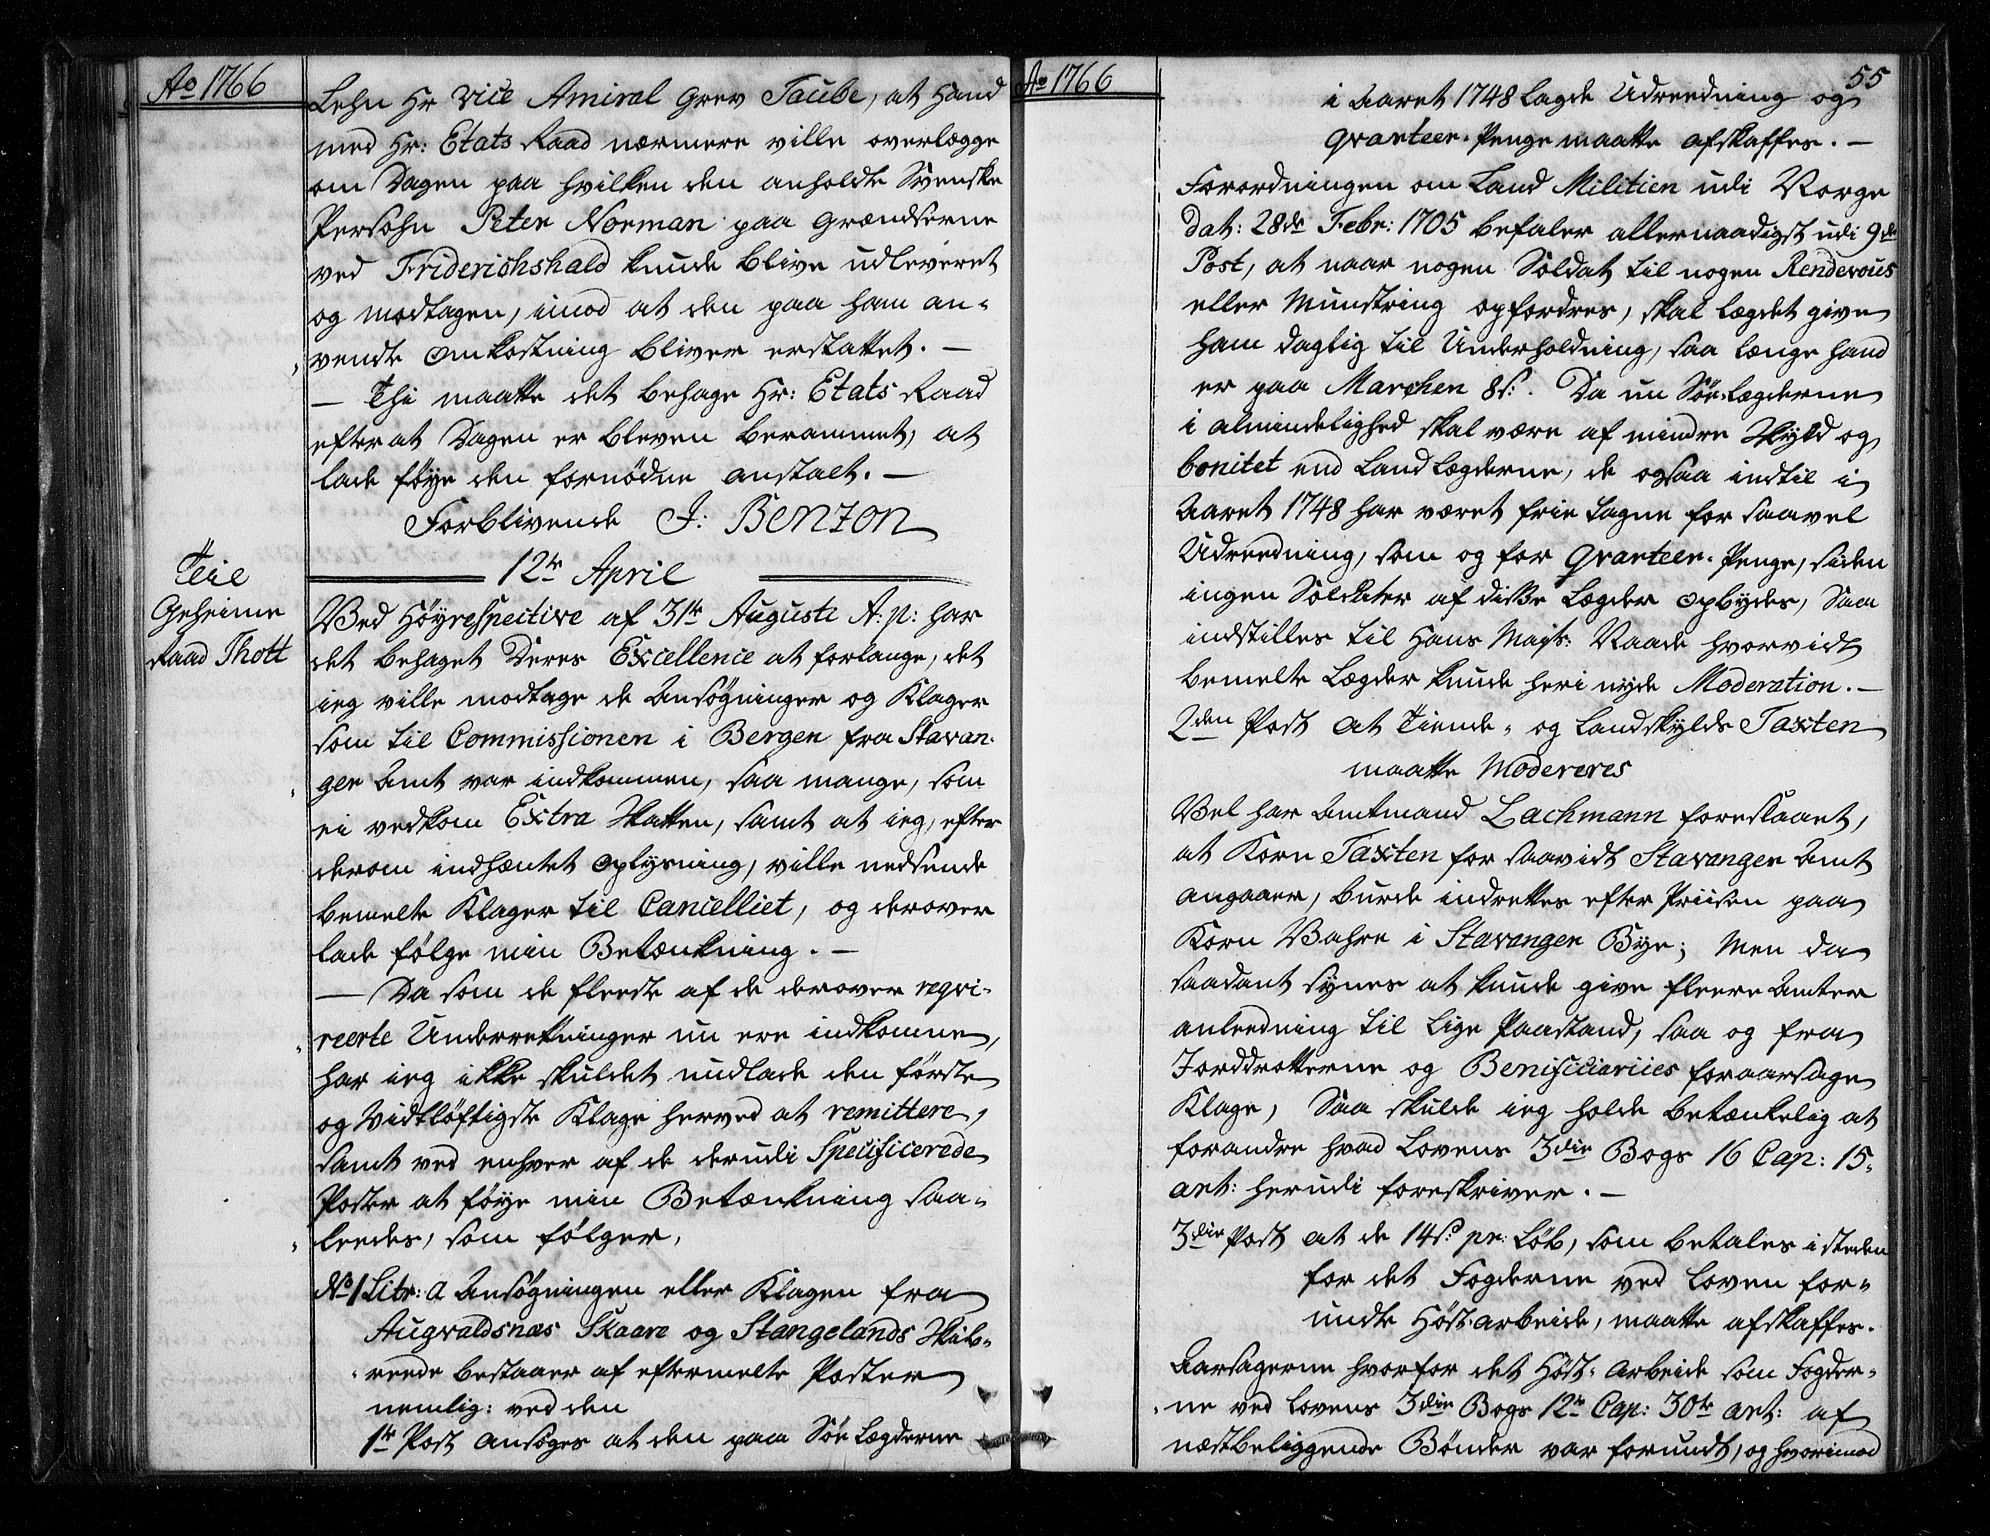 Ao 1766
Lehn Hr Vice Amiral Grev Taube, at Hand
med Hr: Etats Raad nærmere ville overlægge
om Dagen paa hvilken den anholdte Svenske
Persohn Peter Norman paa Grændserne
ved Friderichshald kunde blive udleveret
og modtagen, imod at den paa ham an-
vendte Omkostning bliver erstattet. –
– Thi maatte det behage Hr: Etats Raad
efter at Dagen er bleven berammet, at
lade føye den fornødne anstalt. –
Forblivende J: Benzon
12te April
Til
Geheime
Raad Thott
Ved Høyrespective af 31te Augusti A: p: har
det behaget Deres Excellence at forlange, det
ieg ville modtage de Ansøgninger og Klager
som til Commissionen i Bergen fra Stavan-
ger Amt var indkommen, saa mange, som
ei vedkom Extra Skatten, samt at ieg, efter
derom indhæntet Oplysning, ville nedsende
bemelte Klager til Cancelliet, og derover
lade følge min Betænkning. –
– Da som de fleeste af de derover reqvi-
reerte Underretninger nu ere indkomne,
har ieg ikke skuldet undlade den første
og Vidtløftigste Klage herved at remittere,
samt ved enhver af de derudi Specificerede
Poster at føye min Betænkning saa-
leedes, som følger,
No 1 Litr: a Ansøgningen eller Klagen fra
Augvaldsnæs Skaare og Stangelands Skib-
reede bestaaer af eftermelte Poster
nemlig: ved den
1te Post ansøges at den paa Søe Lægderne
Ao 1766
55
i Aaret 1748 lagde Udreedning og
Qvarteer-Penge maatte afskaffes. –
Forordningen om Land Militien udi Norge
dat: 28de Febr: 1705 befaler allernaadigst udi 9de
Post, at naar nogen Soldat til nogen Rendevous
eller Munstring opfordres, skal Lægdet give
ham daglig til Underholdning, saa længe hand
er paa Marchen 8 s:. Da nu Søe-Lægderne
i almindelighed skal være af mindre Skyld og
bonitet end Land Lægderne, de ogsaa indtil i
Aaret 1748 har været frie tagne for saavel
Udreedning, som og for Qvarteer-Penge, siden
ingen Soldater af disse Lægder opbydes, Saa
indstilles til Hans Majts: Naade hvorvidt
bemelte Lægder kunde heri nyde Moderation. –
2den Post at Tiende- og Landskylds Taxten
maatte Modereres
Vel har Amtmand Lachmann foreslaaet,
at Korn Taxten for saavidt Stavanger Amt
angaaer, burde indrettes efter Priisen paa
Korn Vahre i Stavanger Bye; Men da
saadant synes at kunde give fleere Amter
anleedning til lige Paastand, saa og fra
Jorddrotterne og Beneficiariies foraarsage
Klage, Saa skulde ieg holde betænkelig at
forandre hvad Lovens 3die Bogs 16 Cap: 15-
art: herudi foreskriver. –
3die Post at de 14 s: pr: Løb, som betales i steden
for det Fogderne ved Loven for-
undte Høst-arbeide, maatte afskaffes.
Aarsagerne hvorfor det Høst-arbeide som Fogder-
ne ved Lovens 3die Bogs 12te Cap: 30te art: af
næstbeliggende Bønder var forundt, og hvorimod